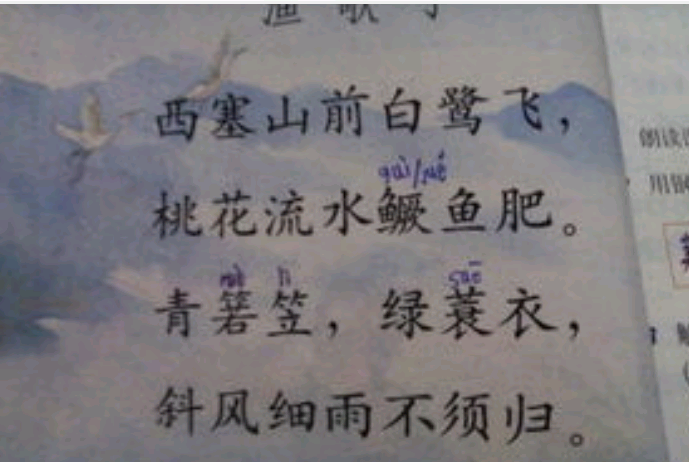 渔歌子
西塞山前白鹭飞，
桃花流水鳜鱼肥。
青箬笠，绿蓑衣，
斜风细雨不须归。
朗读
用